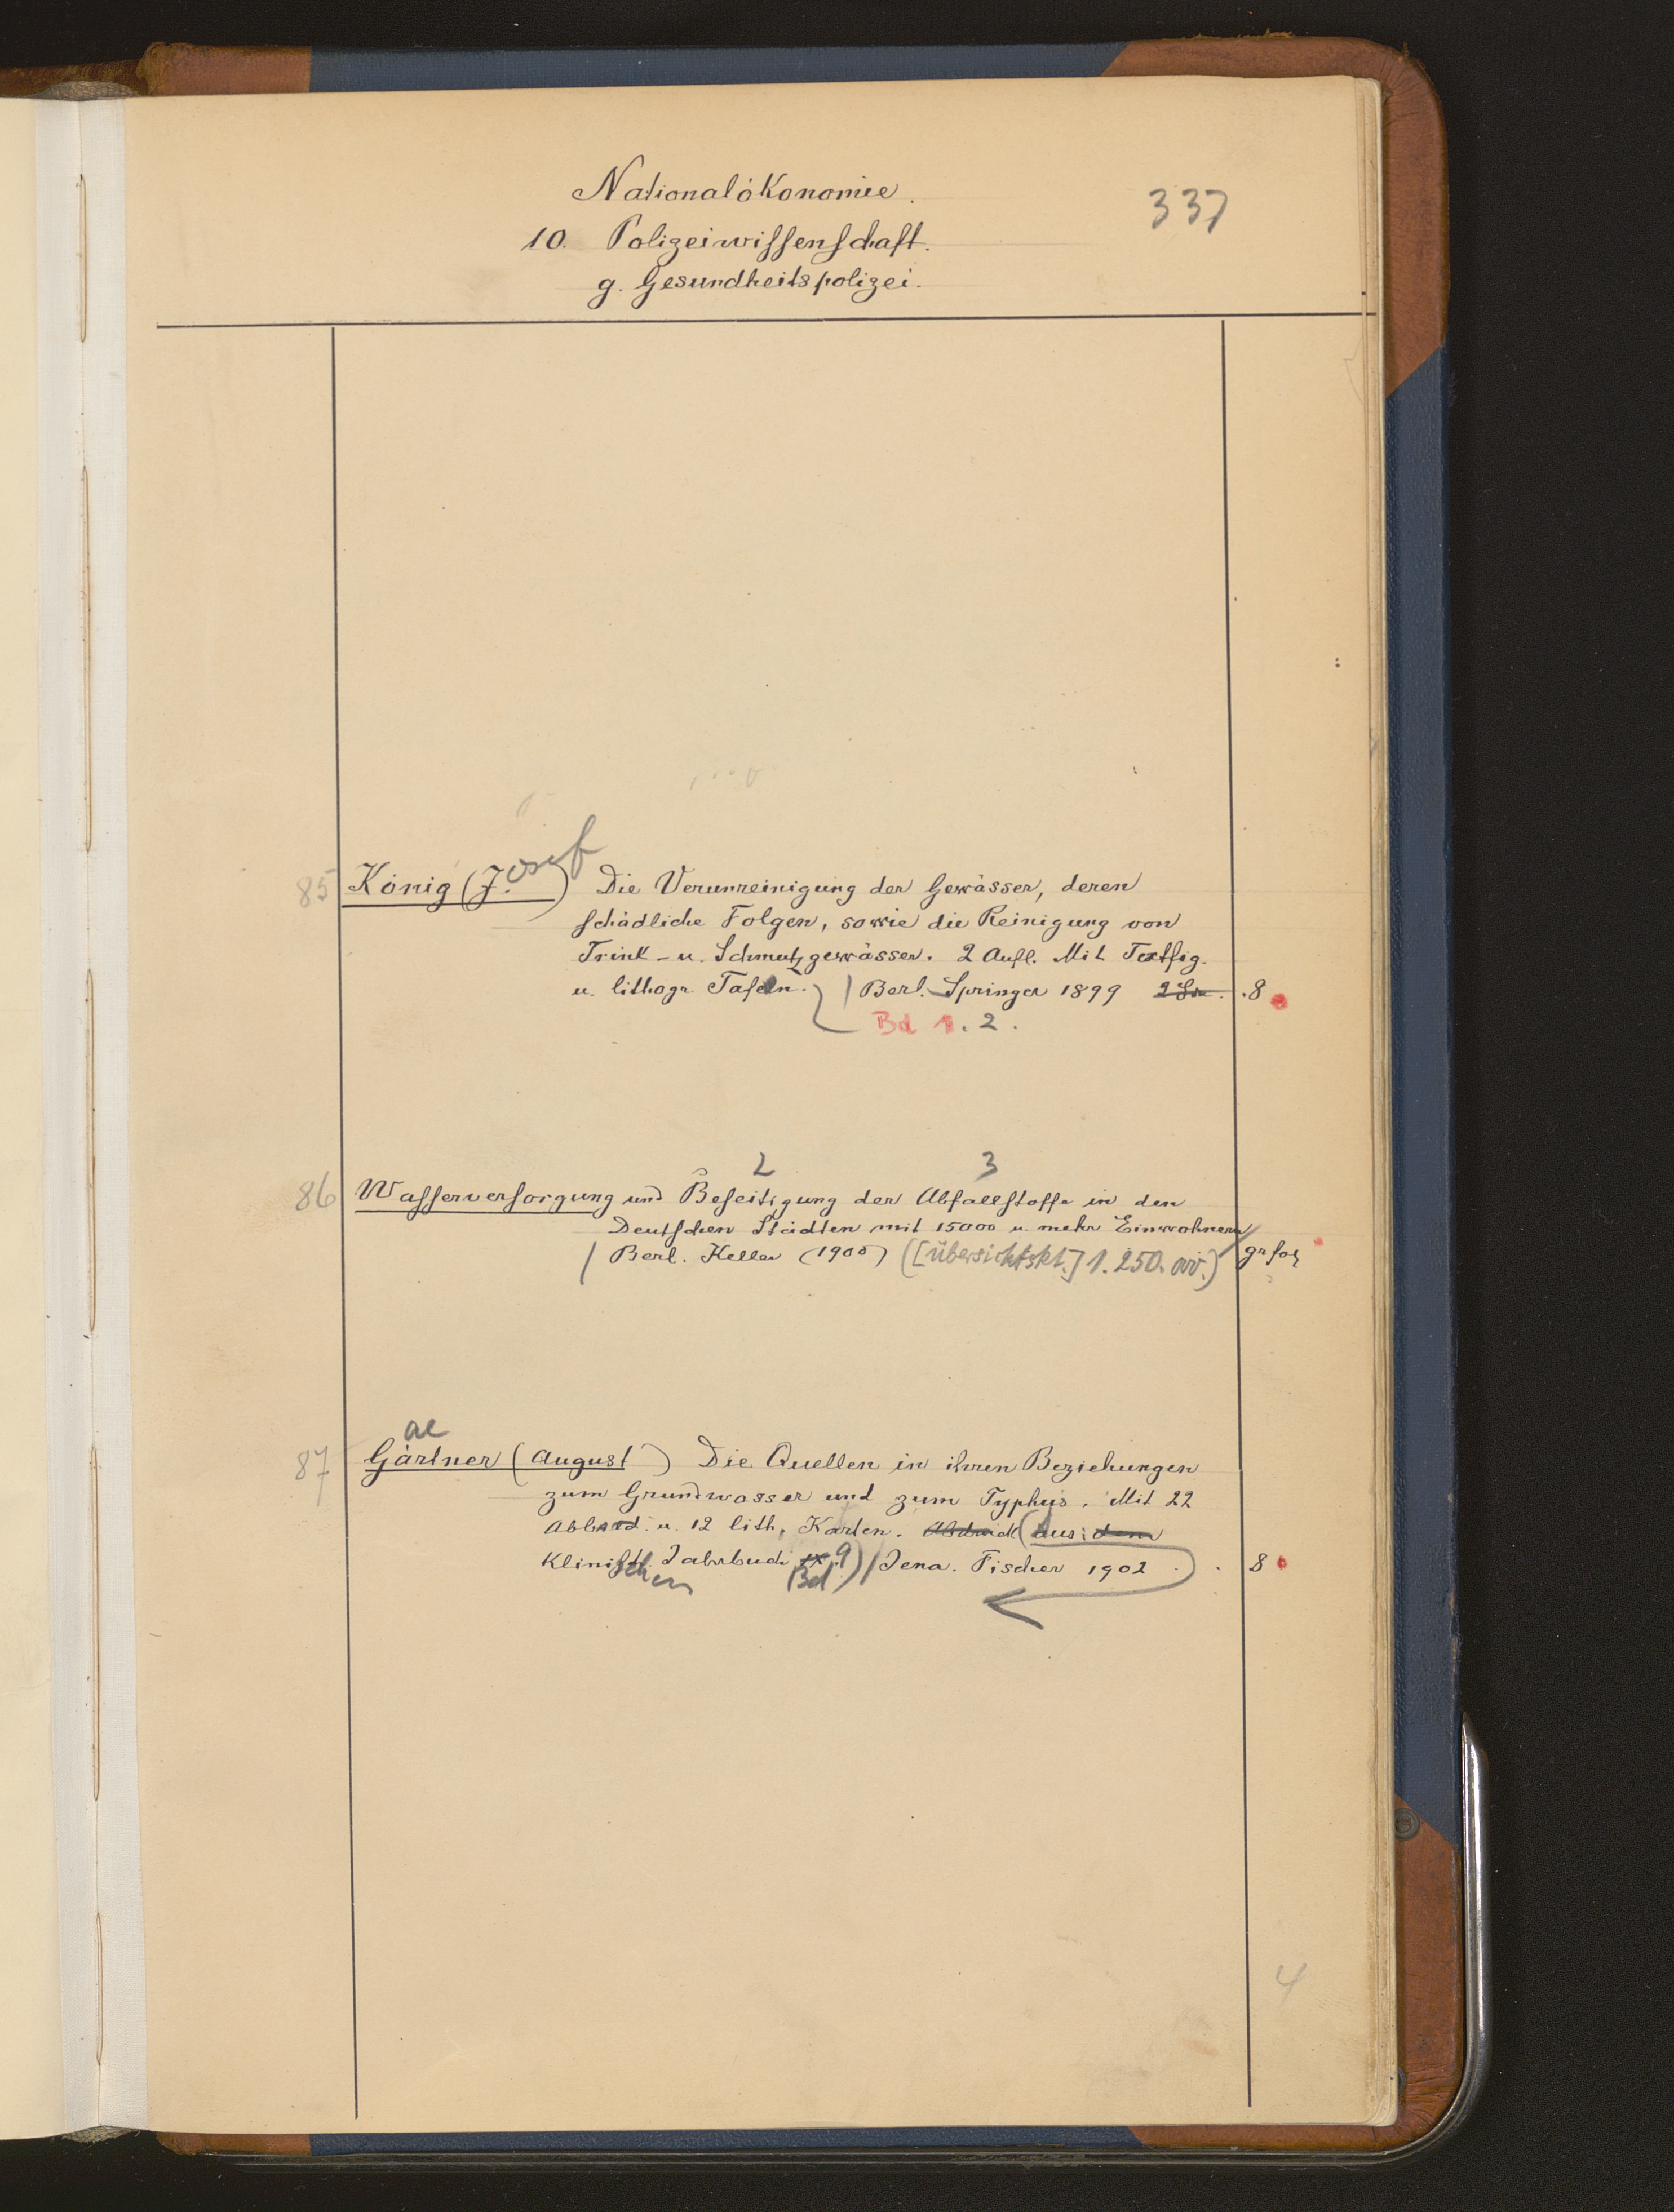 Nationalökonomie.
337
10. Polizeiwissenschaft.
g. Gesundheitspolizei.
85 König (J.osef) Die Verunreinigung der Gewässer, deren
schädliche Folgen, sowie die Reinigung von
Trink- u. Schmutzgewässer. 2 Aufl. Mit Textfig.
u. lithogr. Tafeln. / Berl. Springer 1899 . 8
Bd 1. 2.
2 3
86 Wasserversorgung und Beseitigung der Abfallstoffe in den
Deutschen Städten mit 15000 u. mehr Einwohnern
/ Berl. Keller (1900) ([Übersichtskt.] 1. 250. 000.) gr fol
ae
87 Gärtner (August) Die Quellen in ihren Beziehungen
zum Grundwasser und zum Typhus. Mit 22
u. 12 lith. Karten. Abdruck (aus: dem
Klinischen Jahrbuch Bd 9) / Jena. Fischer 1902 . 8
4